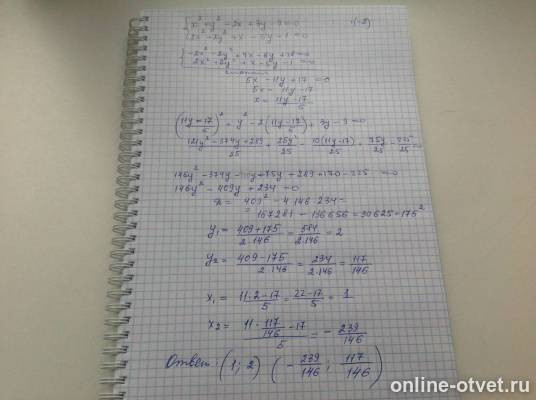 x² + y² - 2x + 3y - 9 = 0 |(-2)
2x² + 2y² + x - 5y - 1 = 0
-2x² - 2y² + 4x - 6y + 18 = 0
2x² + 2y² + x - 5y - 1 = 0
5x - 11y + 17 = 0
5x = 11y - 17
x = (11y - 17)/5
((11y - 17)/5)² + y² - 2((11y - 17)/5) + 3y - 9 = 0
(121y² - 374y + 289)/25 + 25y²/25 - 10(11y - 17)/25 + 75y/25 - 225/25
146y² - 374y - 110y + 75y + 289 + 170 - 225 = 0
146y² - 409y + 234 = 0
D = 409² - 4·146·234 =
= 167281 - 136656 = 30625 = 175²
y₁ = (409 + 175)/(2·146) = 584/(2·146) = 2
y₂ = (409 - 175)/(2·146) = 234/(2·146) = 117/146
x₁ = (11·2 - 17)/5 = (22 - 17)/5 = 1
x₂ = (11·117/146 - 17)/5 = - 239/146
Ответ: (1; 2) (- 239/146; 117/146)
online-otvet.ru